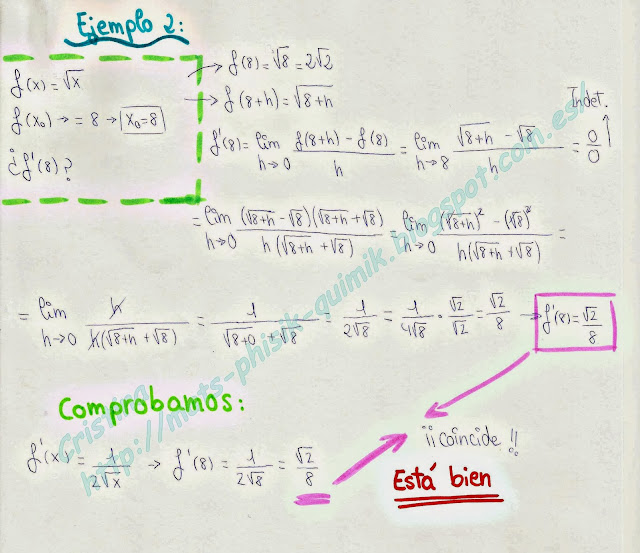 Ejemplo 2:
f(x) = √x
f(x₀) → = 8 → x₀=8
¿f'(8)?
→ f(8) = √8 = 2√2
→ f(8+h) = √8+h
Indet.
f'(8) = lim h→0 (f(8+h) - f(8))/h = lim h→8 (√8+h - √8)/h = 0/0
= lim h→0 (√8+h - √8)(√8+h + √8)/h(√8+h + √8) = lim h→0 ((√8+h)² - (√8)²)/h(√8+h + √8) =
= lim h→0 h/h(√8+h + √8) = 1/(√8+0 + √8) = 1/2√8 = 1/4√8 · √2/√2 = √2/8 → f'(8) = √2/8
Comprobamos:
f'(x) = 1/2√x → f'(8) = 1/2√8 = √2/8
¡¡coincide!!
Está bien
Cristina
http://mats-phisik-quimik.blogspot.com.es/